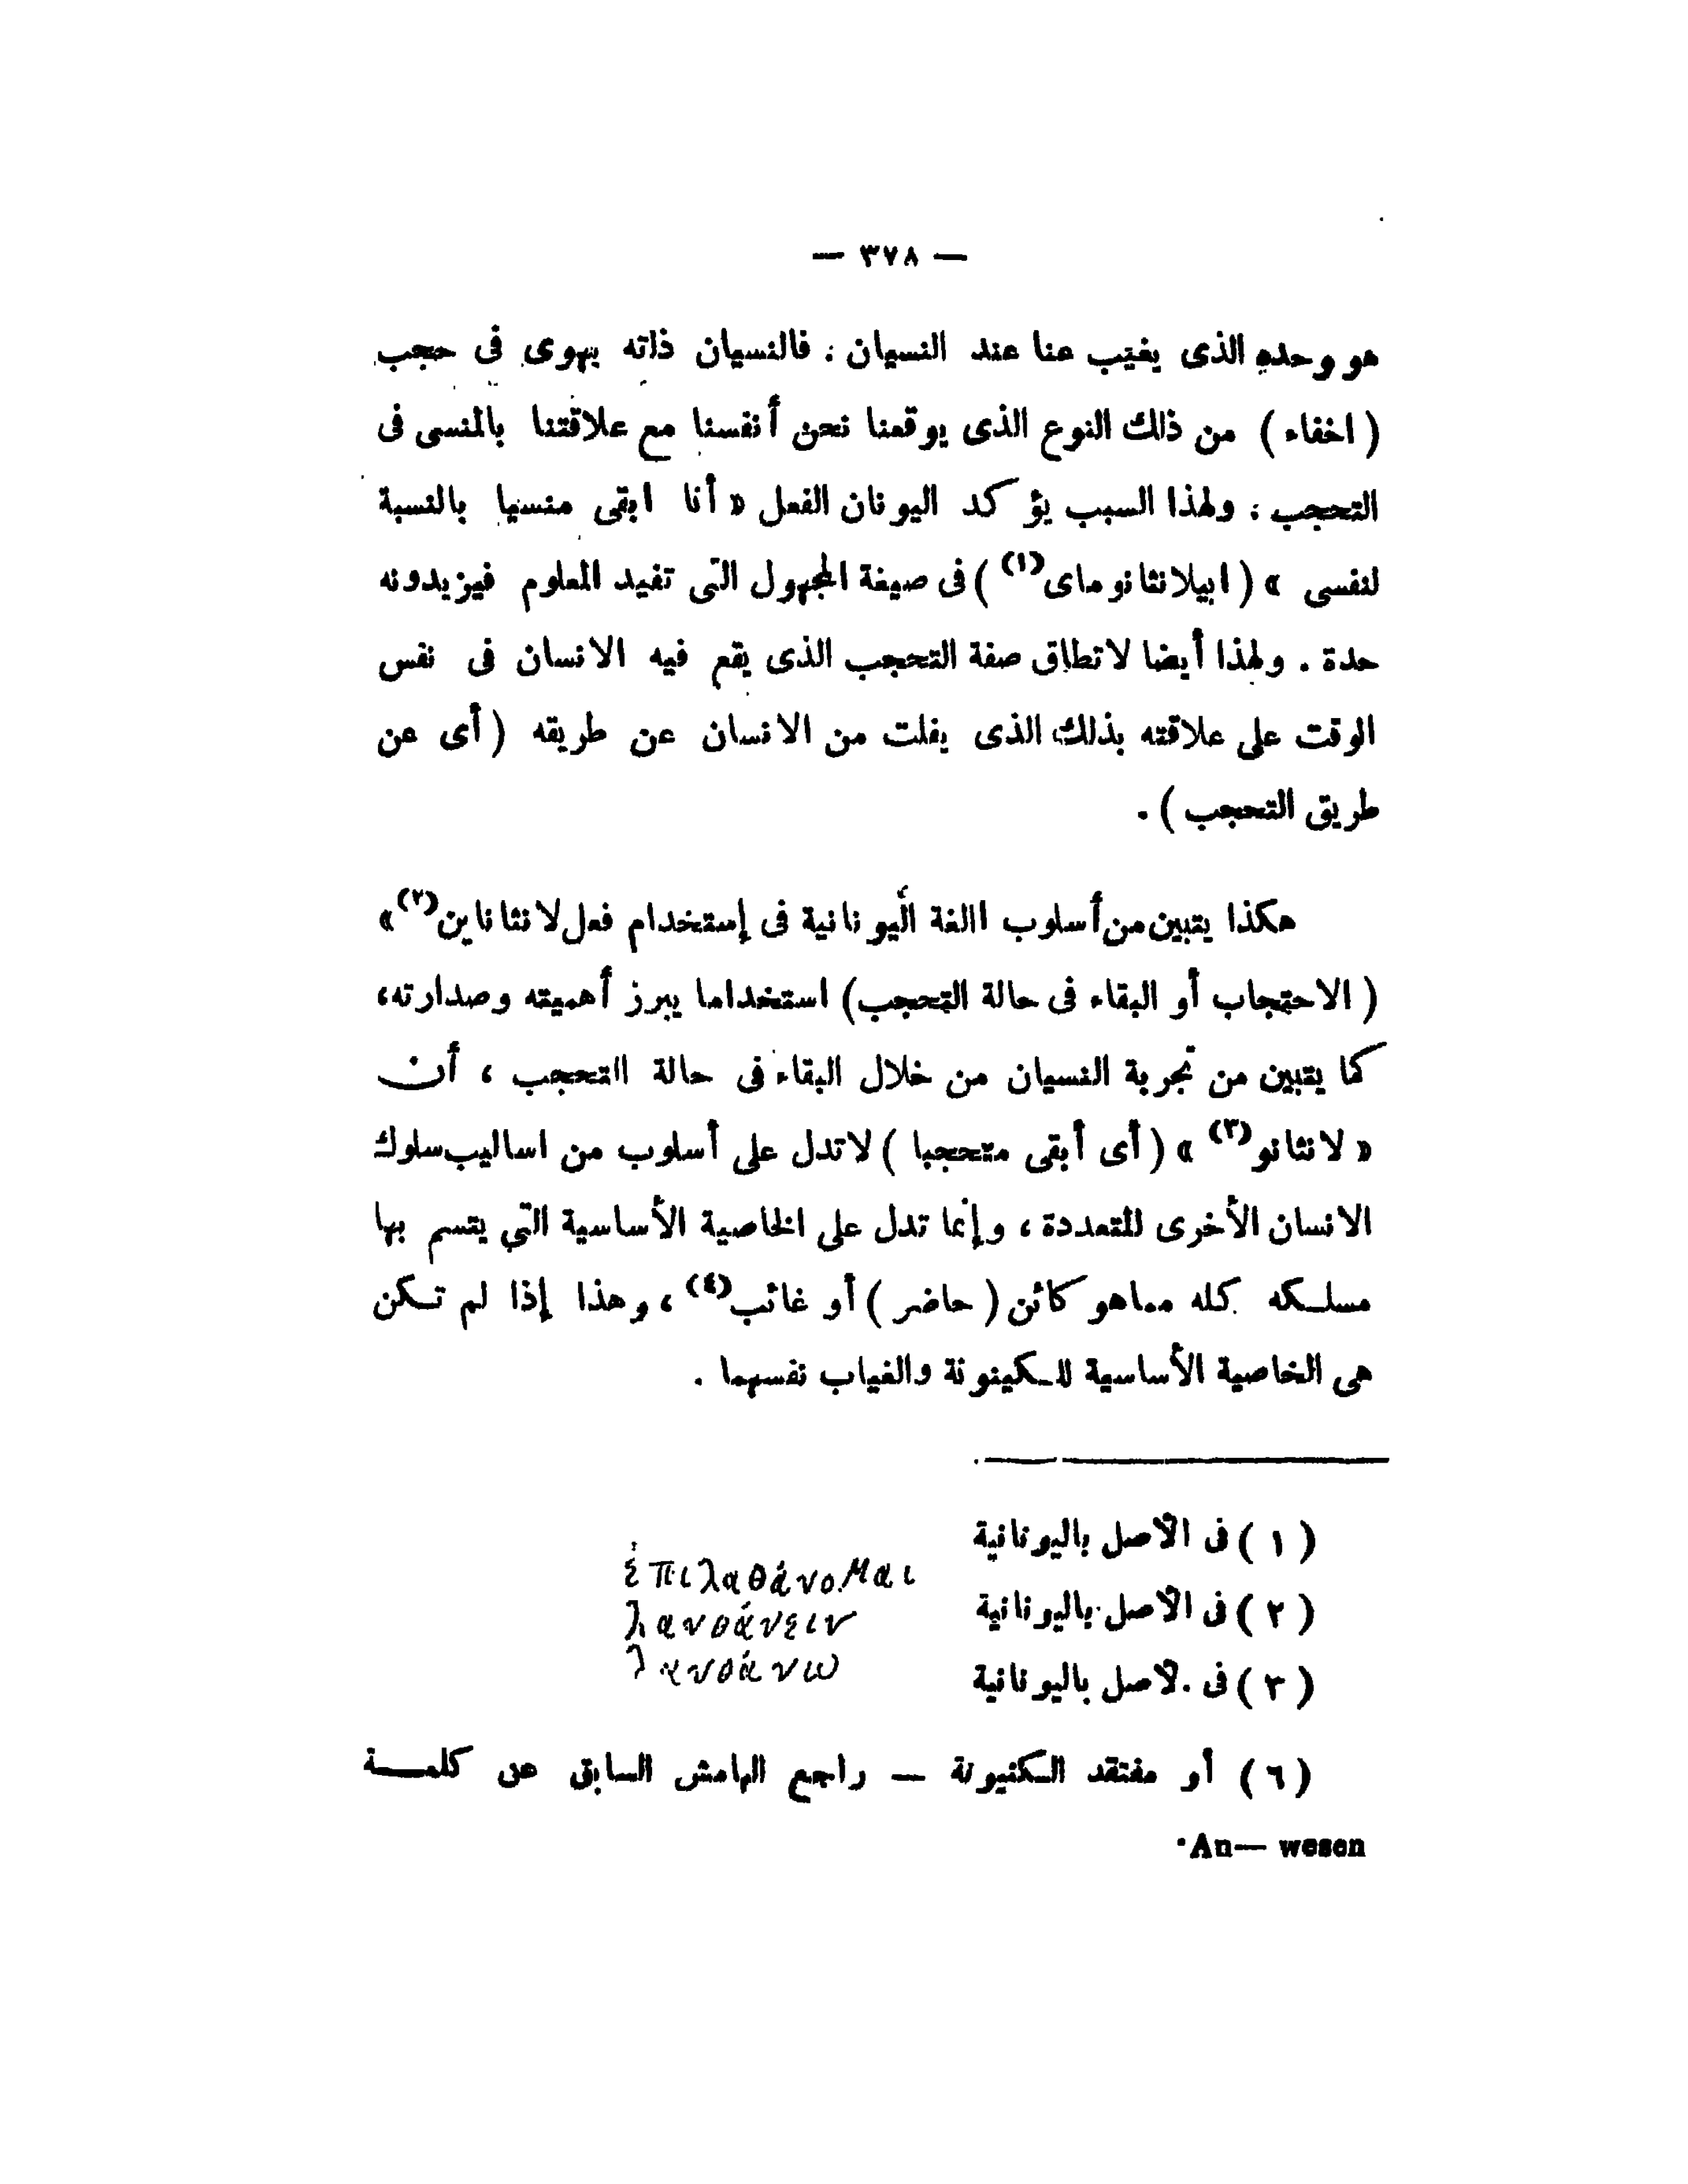 — ٣٧٨ —
هو وحده الذى يغيب عنا عند النسيان . فالنسيان ذاته يهوى فى حجب
( اخفاء ) من ذلك النوع الذى يوقعنا نحن أنفسنا مع علاقتنا بالمنسى فى
التحجب . ولهذا السبب يؤكد اليونان الفعل « أنا ابقى منسيا بالنسبة
لنفسى » ( ابيلانثانوماى(١) ) فى صيغة المجهول التى تفيد المعلوم فيزيدونه
حدة . ولهذا أيضا لا تطلق صفة التحجب الذى يقع فيه الانسان فى نفس
الوقت على علاقته بذلك الذى يفلت من الانسان عن طريقه ( أى عن
طريق التحجب ) .
هكذا يتبين من أسلوب اللغة اليونانية فى إستخدام فعل لانثاناين(٢) »
( الاحتجاب أو البقاء فى حالة التحجب ) استخداما يبرز أهميته وصدارته،
كما يتبين من تجربة النسيان من خلال البقاء فى حالة التحجب ، أن
« لانثانو(٣) » ( أى أبقى متحجبا ) لا تدل على أسلوب من اساليب سلوك
الانسان الأخرى المتعددة ، وإنما تدل على الخاصية الأساسية التى يتسم بها
مسلكه كله مما هو كائن ( حاضر ) أو غائب(٤) ، وهذا إذا لم تكن
هى الخاصية الأساسية للكينونة والغياب نفسهما .
( ١ ) فى الأصل باليونانية ἐπιλαθάνομαι
( ٢ ) فى الأصل باليونانية λανθάνειν
( ٣ ) فى الاصل باليونانية λανθάνω
( ٦ ) أو مفتقد الكنيونة — راجع الهامش السابق عن كلمة
An— wesen.